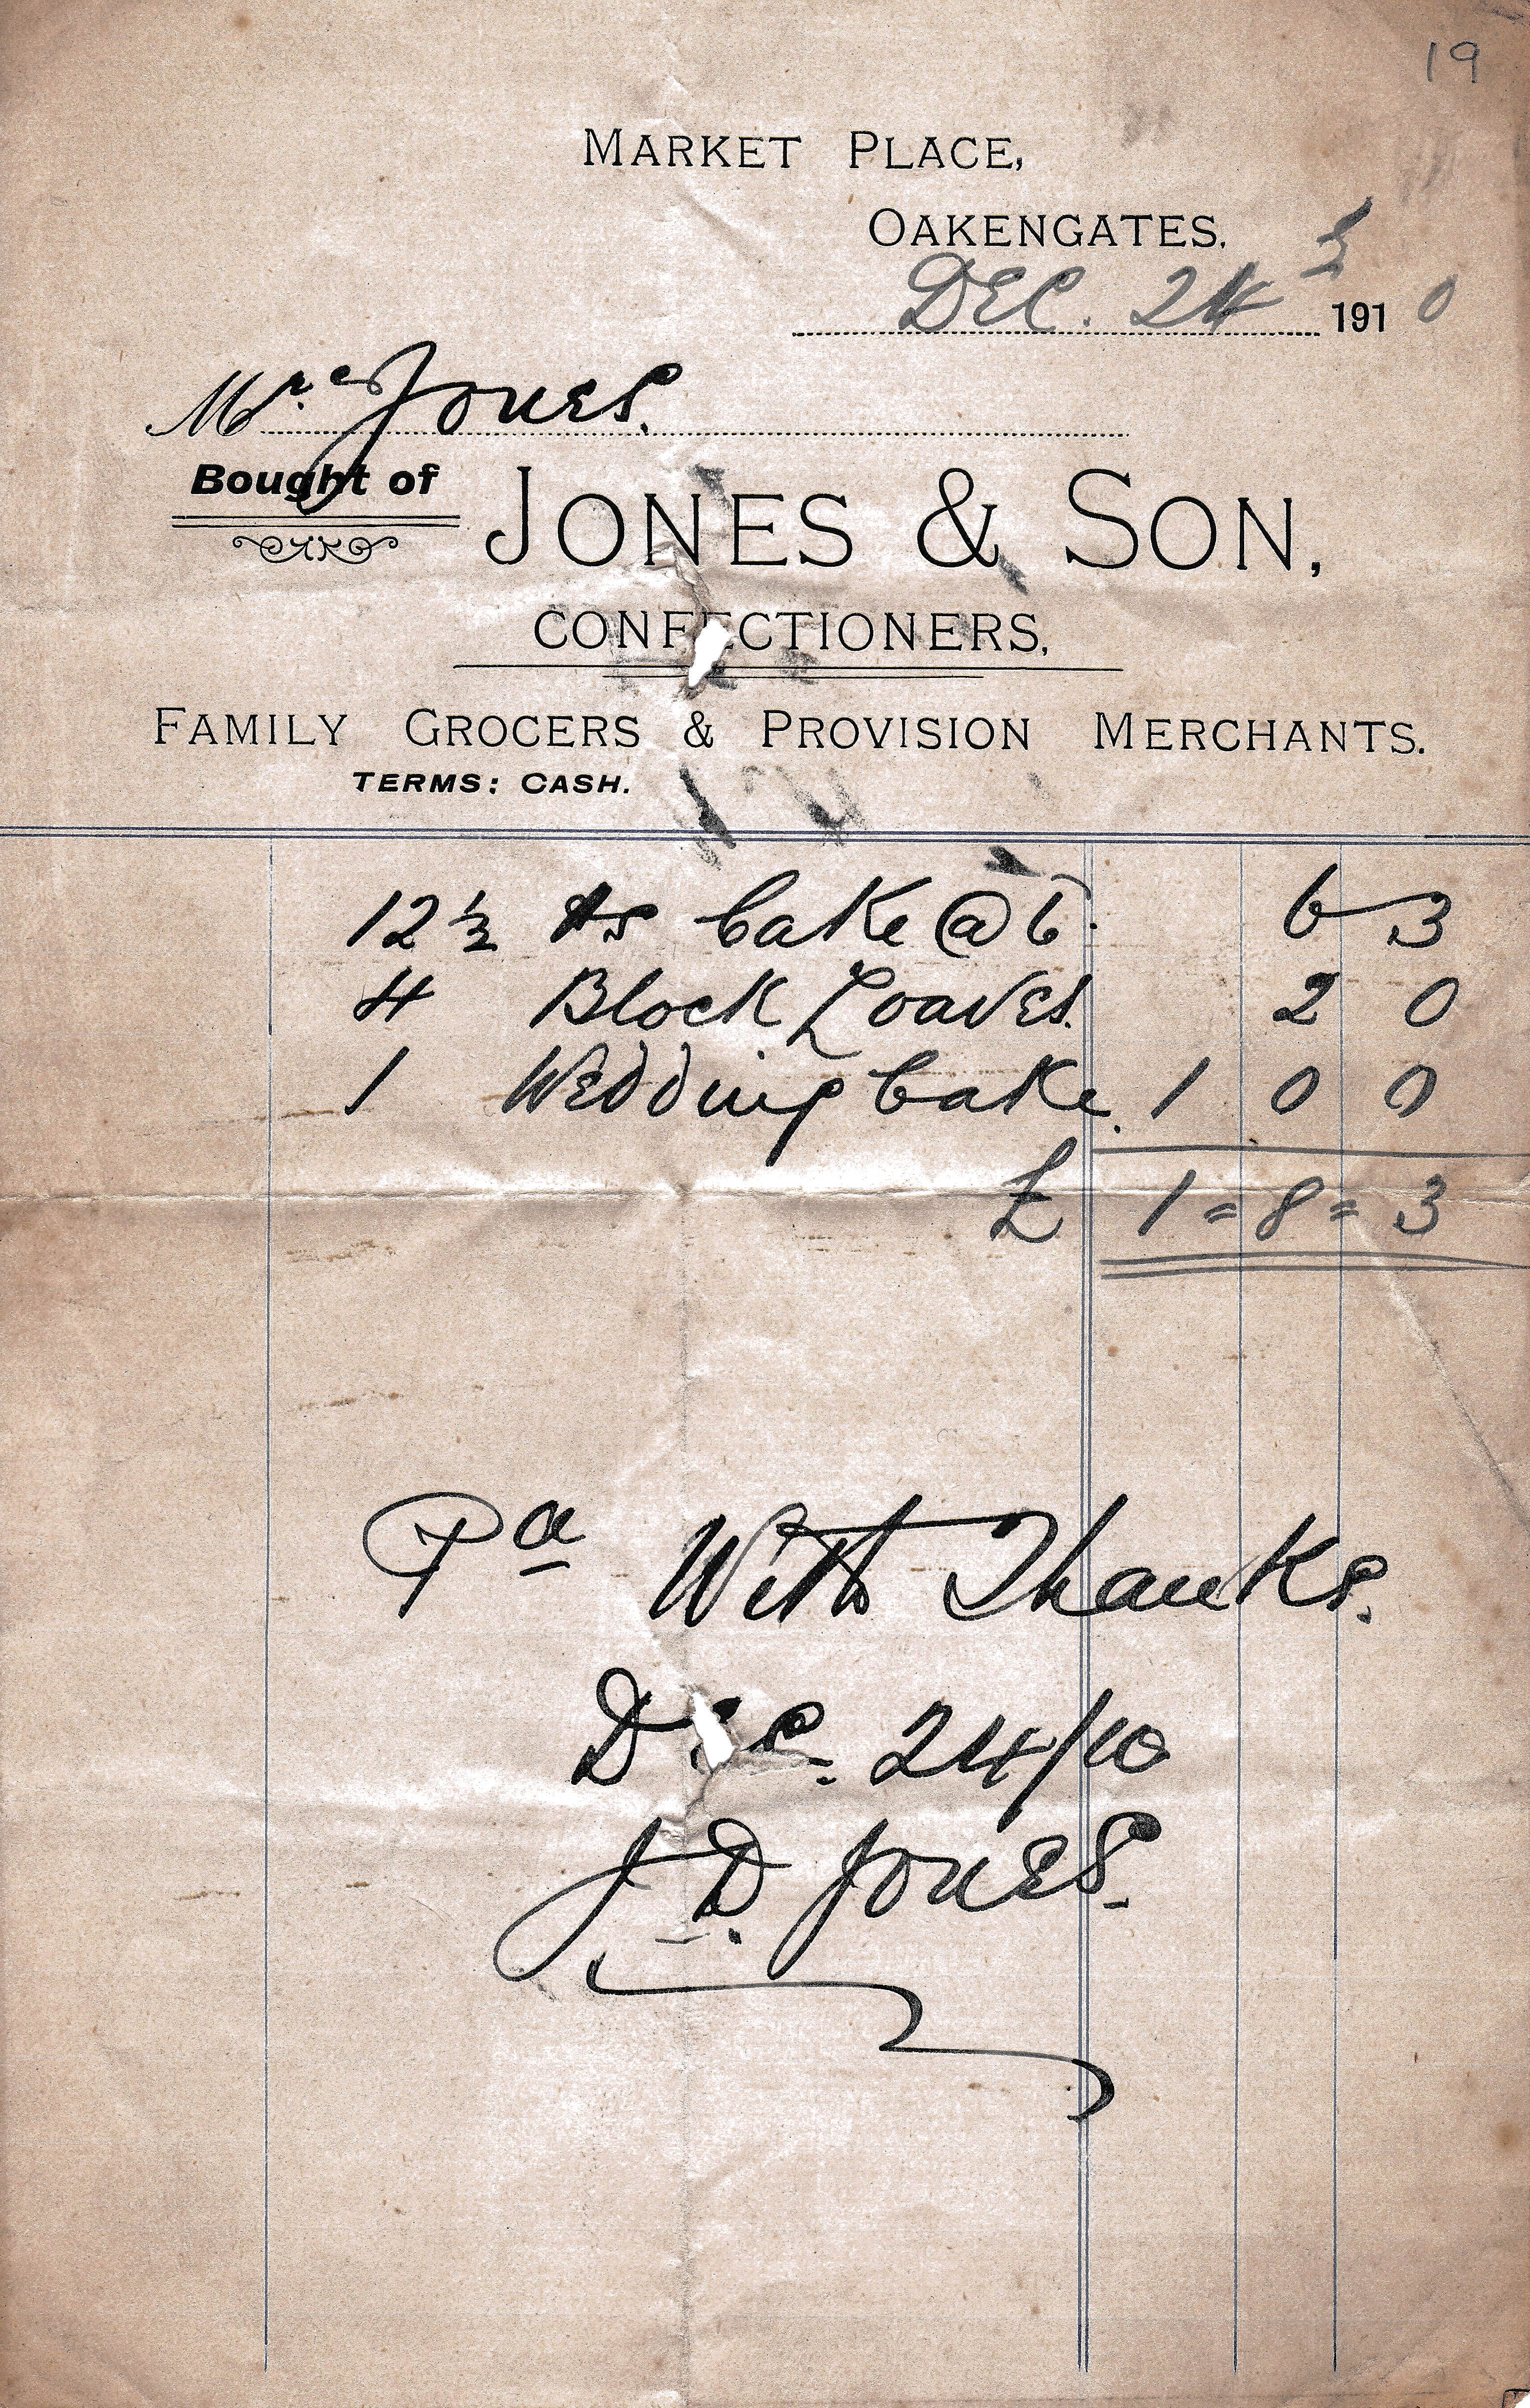 19
MARKET PLACE,
OAKENGATES.
DEC. 24 1910
Mrs Jones.
Bought of JONES & SON,
CONFECTIONERS,
FAMILY GROCERS & PROVISION MERCHANTS.
TERMS: CASH.
12½ lbs Cake @ 6. 6 3
4 Block Loaves. 2 0
1 Wedding Cake. 1 0 0
£ 1 = 8 = 3
Pd With Thanks.
Dec. 24/10
J. D. Jones.